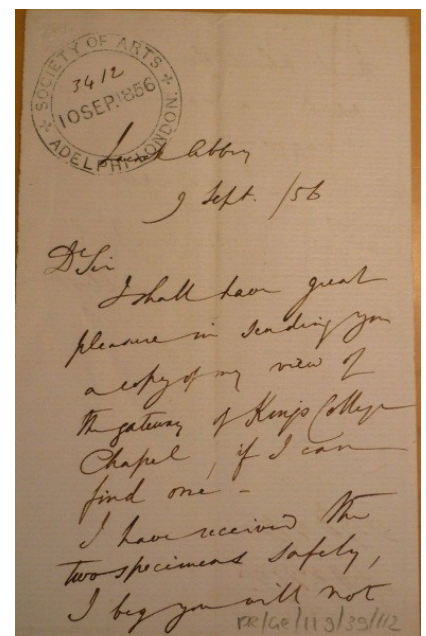 SOCIETY OF ARTS
3412
10 SEP. 1856
ADELPHI LONDON
Lacock Abbey
9 Sept. /56
Dr Sir
I shall have great
pleasure in sending you
a copy of my view of
the gateway of Kings College
Chapel, if I can
find one -
I have received the
two specimens safely,
I beg you will not
PR/GE/119/39/112